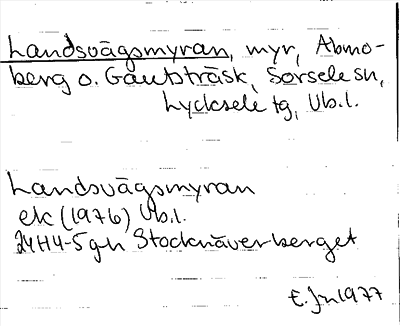 Landsvägsmyran, myr, Abmo-
berg o. Gauttträsk, Sorsele sn,
Lycksele tg, Vb.l.
Landsvägsmyran
ek (1976) Vb.l.
24H4-5g-h Stocknäverberget
E. Jn 1977